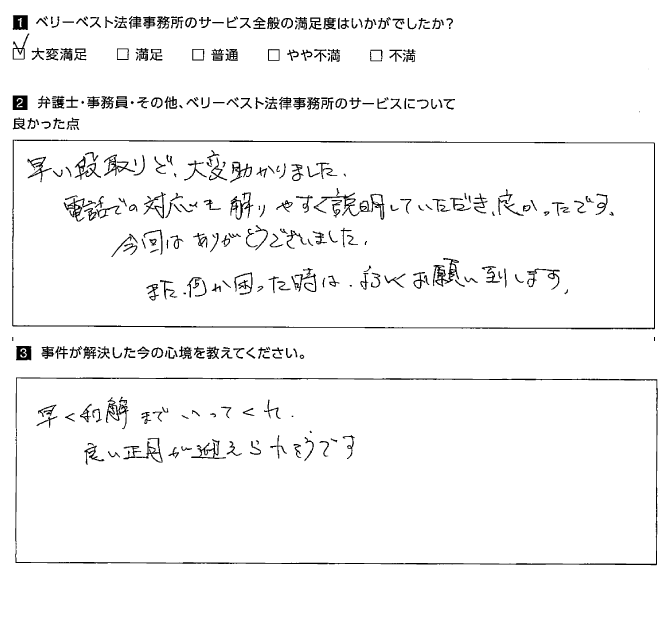 1 ベリーベスト法律事務所のサービス全般の満足度はいかがでしたか?
☑ 大変満足 □ 満足 □ 普通 □ やや不満 □ 不満
2 弁護士・事務員・その他、ベリーベスト法律事務所のサービスについて
良かった点
早い段取りで、大変助かりました。
電話での対応も解りやすく説明していただき、良かったです。
今回はありがとうございました。
また、何か困った時は、よろしくお願い到します。
3 事件が解決した今の心境を教えてください。
早く和解までいってくれ、
良い正月が迎えられそうです